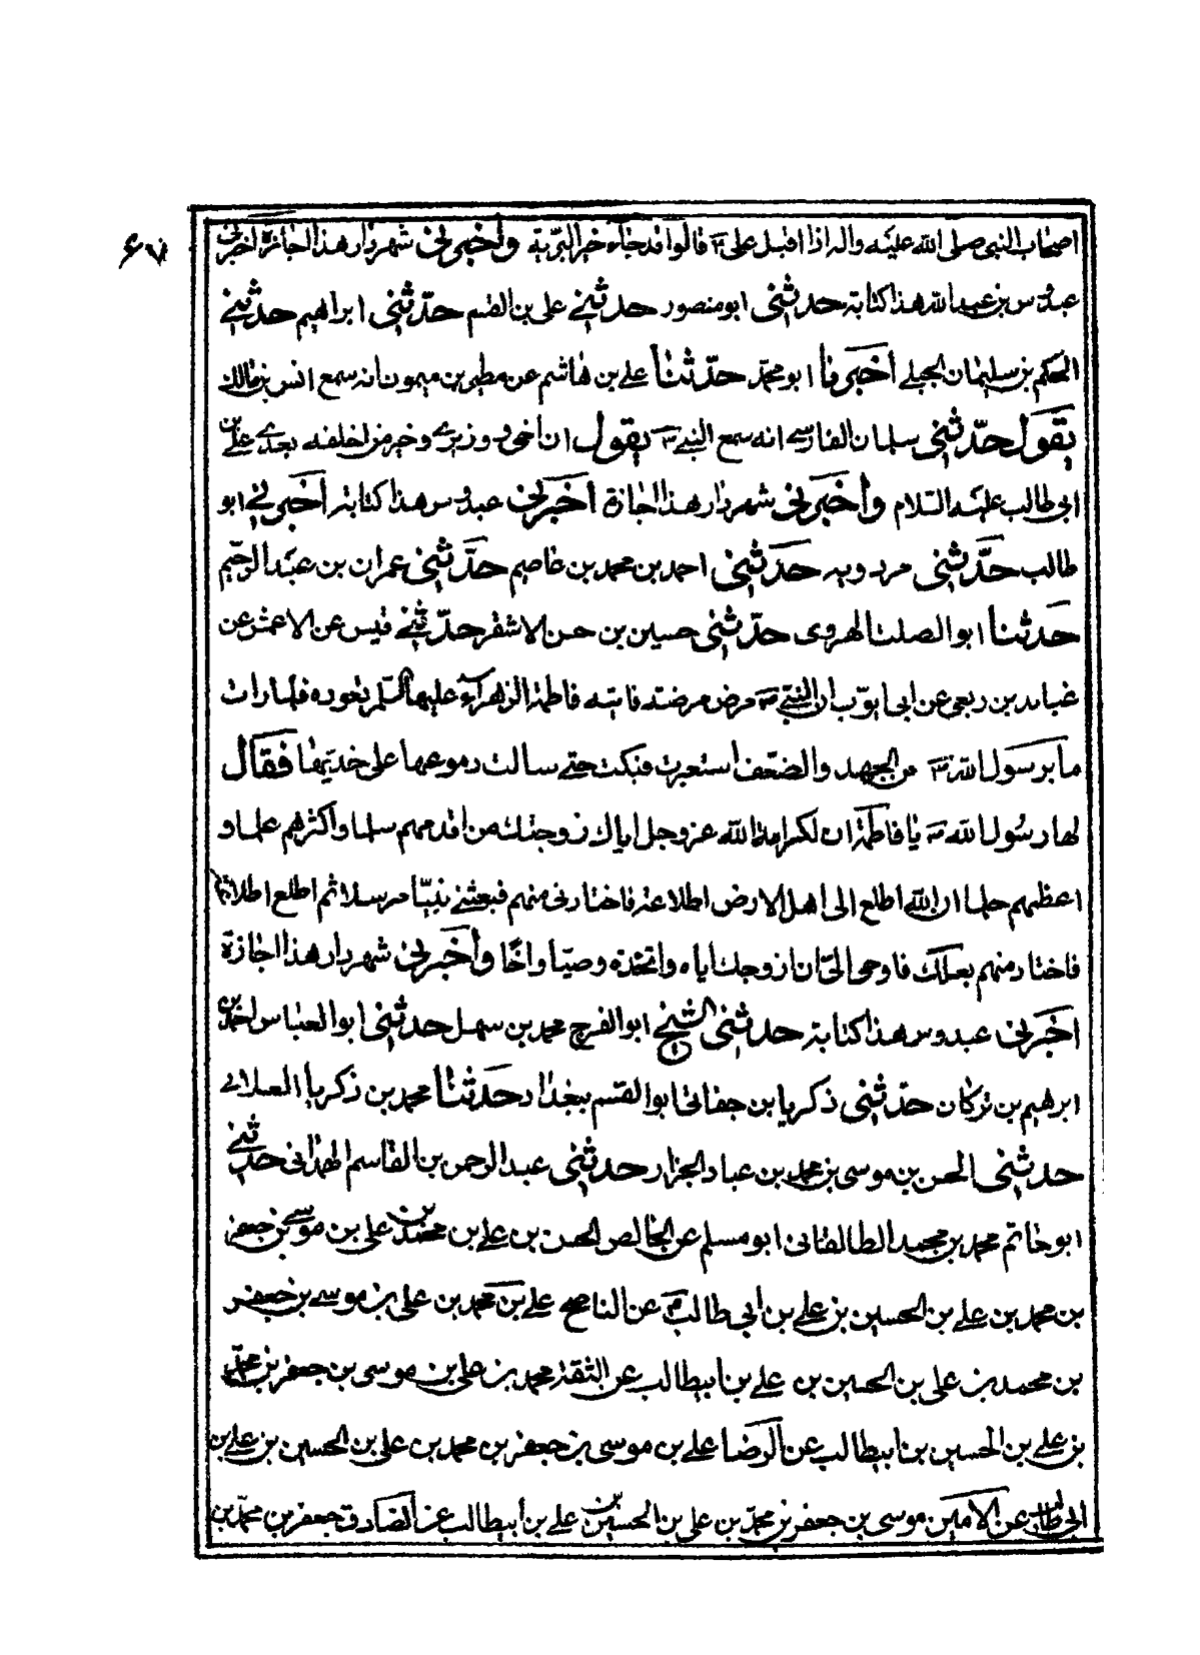 ۶۷
اصحاب النبي صلى الله عليه واله اذا اقبل على قالوا قد جاء خير البرية واخبرني شهردار هذا اجازة اخبرني
عبدوس بن عبد الله هذا كتابة حدثني ابو منصور حدثني على بن القسم حدثني ابراهيم حدثني
الحكم بن سليمان الجبلي أخبرنا ابو محمد حدثنا علي بن هاشم عن مطير بن ميمون انه سمع انس بن مالك
يقول حدثني سلمان الفارسي انه سمع النبي ص يقول ان اخى و وزيري وخير من اخلفه بعدي على بن
ابي طالب عليه السلام وأخبرني شهردار هذا اجازة أخبرني عبدوس هذا كتابة أخبرني ابو
طالب حدثني مردويه حدثني احمد بن محمد بن عاصم حدثني عمران بن عبد الرحيم
حدثنا ابو الصلت الهروى حدثني حسين بن حسن الاشقر حدثني قيس عن الاعمش عن
عبايه بن ربعى عن ابى ايوب ان النبي ص مرض مرضته فاتته فاطمة الزهراء عليها السلم تعوده فلما رات
ما برسول الله ص من الجهد والضعف استعبرت فبكت حتى سالت دموعها على خديها فقال
لها رسول الله ص يا فاطمة ان لكرامة الله عز وجل اياك زوجتك من اقدمهم سلما واكثرهم علما و
اعظمهم حلما ان الله اطلع الى اهل الارض اطلاعة فاختارنى منهم فبعثنى نبيا مرسلا ثم اطلع اطلاعة
فاختار منهم بعلك فاوحى الىّ ان ازوجك اياه واتخذه وصيا واخا وأخبرني شهردار هذا اجازة
اخبرني عبدوس هذا كتابة حدثني الشيخ ابو الفرج محمد بن سهل حدثني ابو العباس احمد بن
ابرهيم بن تركان حدثني زكريا بن ابو القسم ببغداد حدثنا محمد بن زكريا
حدثني الحسن بن موسى بن محمد بن عباد الجزار حدثني عبد الرحمن بن القاسم الهمدانى حدثني
ابو حاتم محمد بن محمد الطالقانى ابو مسلم عن الخالص الحسن بن علي بن محمد بن على بن موسى بن جعفر
بن محمد بن علي بن الحسين بن علي بن ابي طالب عن الناصح علي بن محمد بن على بن موسى بن جعفر
بن محمد بن على بن الحسين بن علي بن ابيطالب عن الثقة محمد بن على بن موسى بن جعفر بن محمد
بن علي بن الحسين بن ابيطالب عن الرضا علي بن موسى بن جعفر بن محمد بن على بن الحسين بن علي بن
ابي طالب عن الامين موسى بن جعفر بن محمد بن على بن الحسين بن علي بن ابيطالب عن الصادق جعفر بن محمد بن